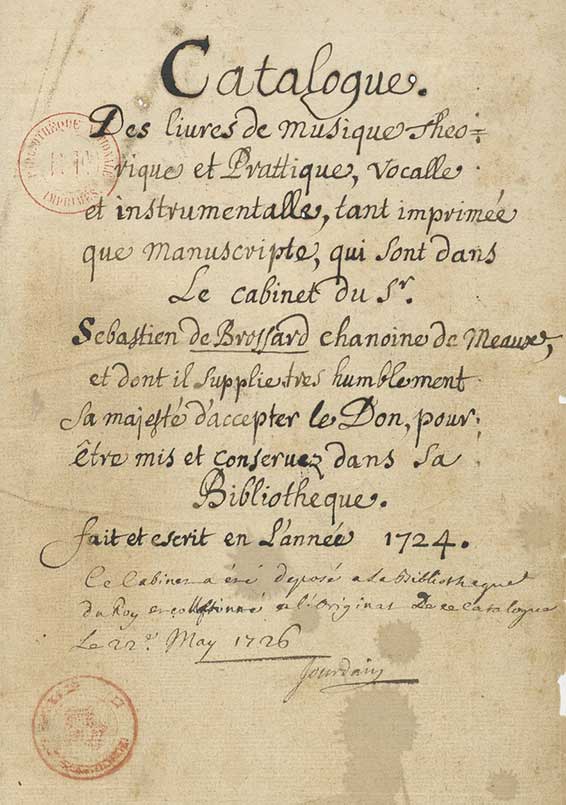 Catalogue.
Des livres de musique Theo=
rique et Prattique, vocalle
et instrumentalle, tant imprimée
que Manuscripte, qui sont dans
Le cabinet du Sr.
Sebastien de Brossard chanoine de Meaux,
et dont il supplie tres humblement
sa majesté d'accepter le Don, pour
être mis et conservez dans sa
Bibliotheque.
fait et escrit en L'année 1724.
Ce Cabinet a été deposé a la Bibliotheque
du Roy et collationné a l'Original De ce Catalogue
Le 22e. May 1726
Jourdain
BIBLIOTHÈQUE
IMPRIMÉS